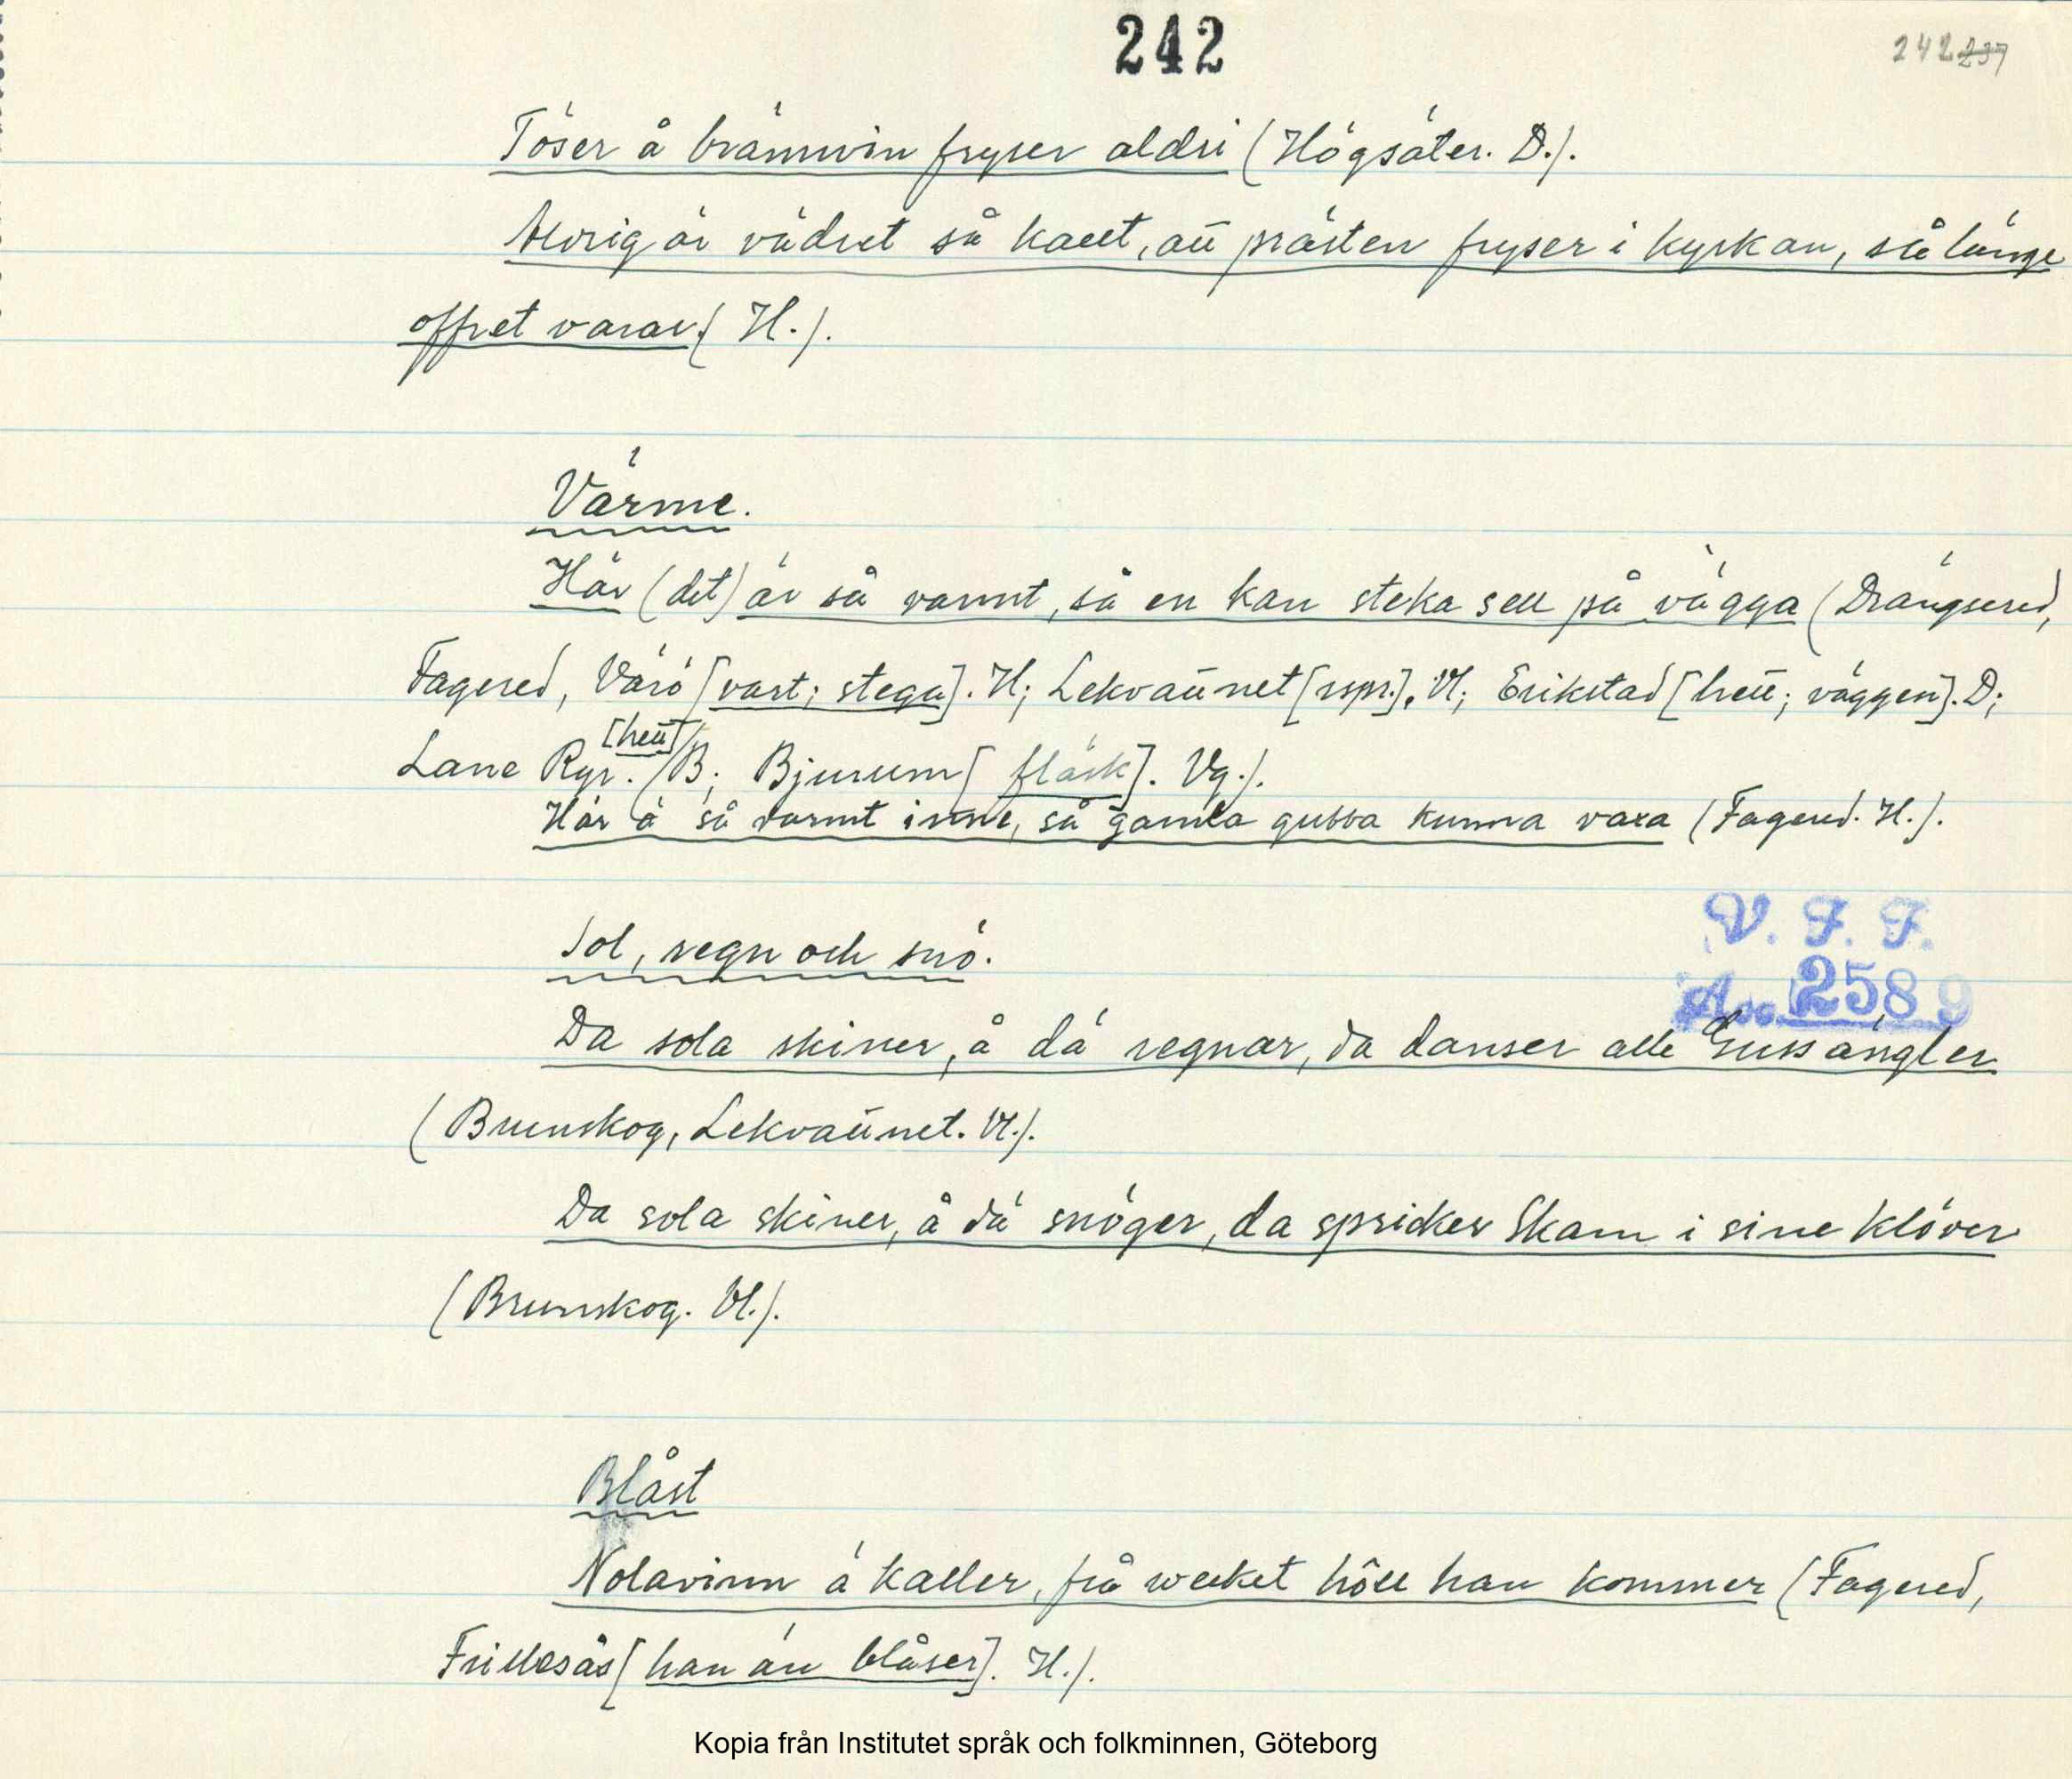 242
242 237
Töser å brännvin fryser aldri (Högsäter. D.).
Aldrig är vädret så kallt, att prästen fryser i kyrkan, så länge
offret varar (H.).
Värme.
Här (det) är så varmt, så en kan steka sell på vägga (Drängsered,
Fagered, Värö [vart; stega]. H; Lekvattnet [rspr.]. Vl; Erikstad [hett; väggen]. D;
[hett]
Lane Ryr. B; Bjurum [fläsk]. Vg.).
Här ä så varmt inne, så gamla gubba kunna vara (Fagered. H.).
Sol, regn och snö.
V. F. F.
Acc. 2589
Da sola skiner, å dä regnar, da danser alle Guss ängler
(Brunskog, Lekvattnet. Vl.).
Da sola skiner, å dä snöger, da spricker Skam i sine klöver
(Brunskog. Vl.).
Blåst
Nolavinn ä kaller, frå wecket höll han kommer (Fagered,
Frillesås [han än blåser]. H.).
Kopia från Institutet språk och folkminnen, Göteborg